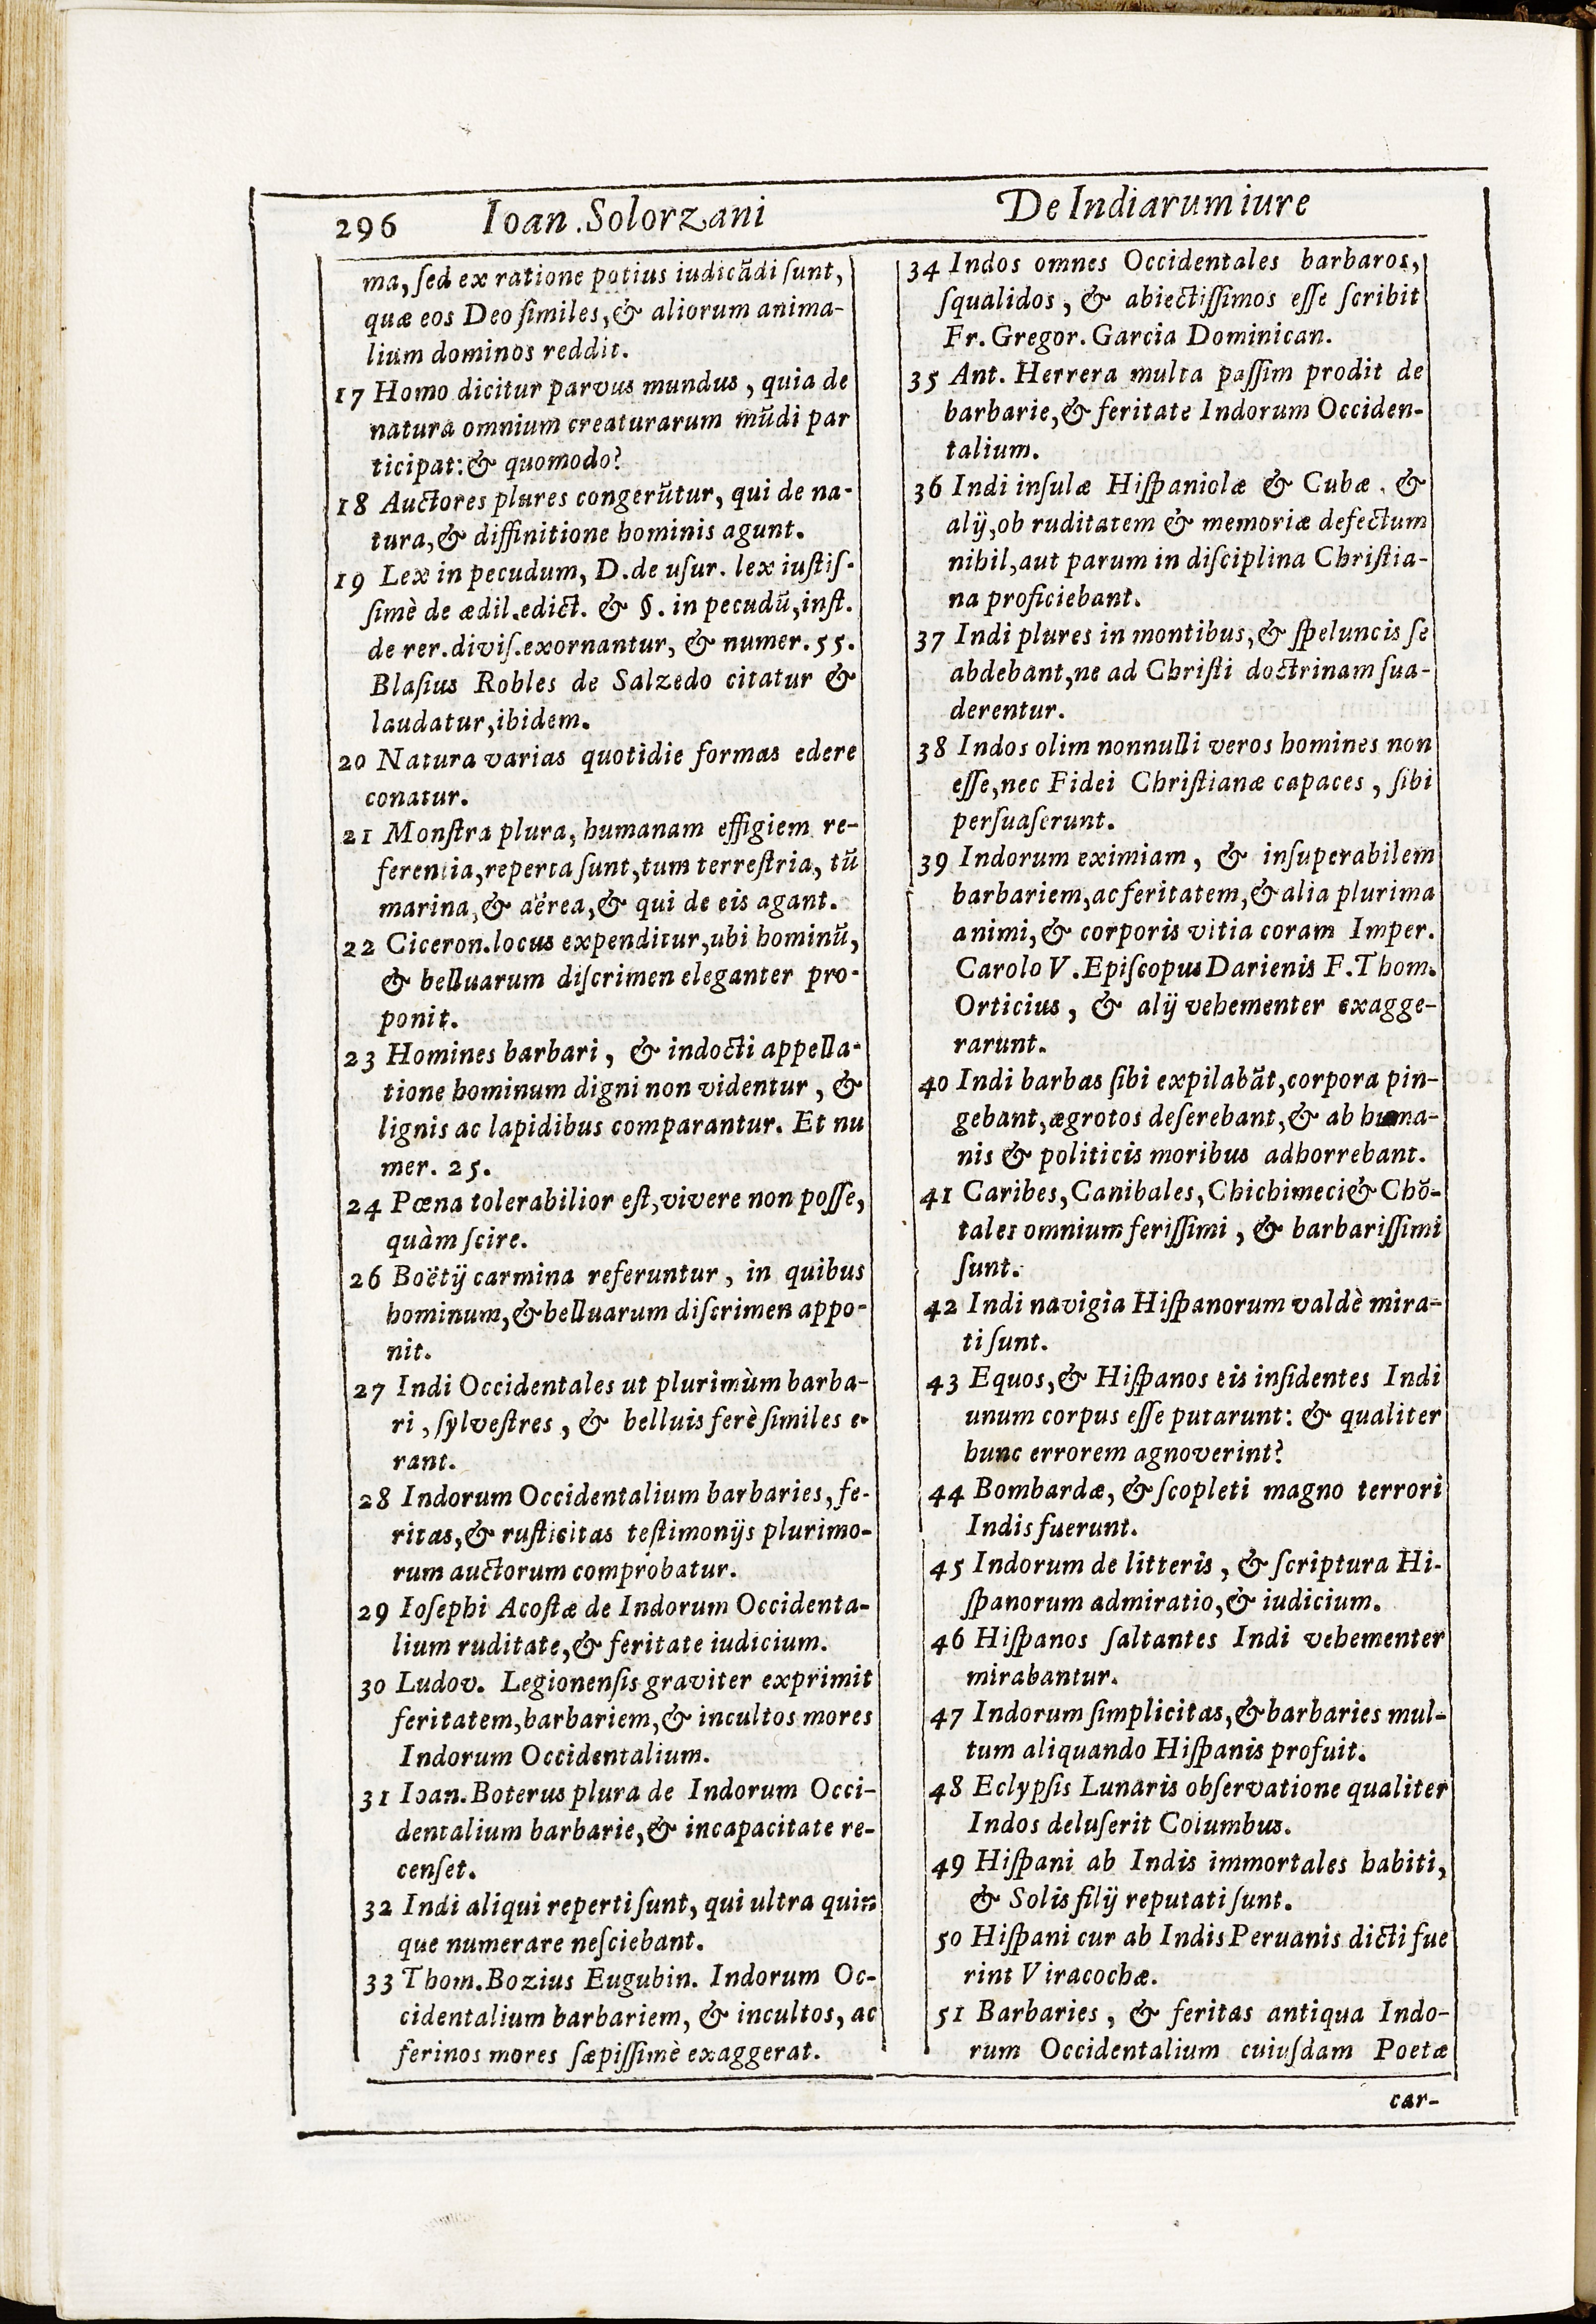 296 Ioan. Solorzani De Indiarum iure
ma, ſed ex ratione potius iudicãdi ſunt,
quæ eos Deo ſimiles, & aliorum anima-
lium dominos reddit.
17 Homo dicitur parvus mundus, quia de
natura omnium creaturarum mũdi par
ticipat: & quomodo?
18 Auctores plures congerũtur, qui de na-
tura, & diffinitione hominis agunt.
19 Lex in pecudum, D. de uſur. lex iuſtiſ-
ſimè de ædil. edict. & §. in pecudũ, inſt.
de rer. diviſ. exornantur, & numer. 55.
Blaſius Robles de Salzedo citatur &
laudatur, ibidem.
20 Natura varias quotidie formas edere
conatur.
21 Monſtra plura, humanam effigiem re-
ferentia, reperta ſunt, tum terreſtria, tũ
marina, & aërea, & qui de eis agant.
22 Ciceron. locus expenditur, ubi hominũ,
& belluarum diſcrimen eleganter pro-
ponit.
23 Homines barbari, & indocti appella-
tione hominum digni non videntur, &
lignis ac lapidibus comparantur. Et nu
mer. 25.
24 Pœna tolerabilior eſt, vivere non poſſe,
quàm ſcire.
26 Boëtij carmina referuntur, in quibus
hominum, & belluarum diſcrimen appo-
nit.
27 Indi Occidentales ut plurimùm barba-
ri, ſylveſtres, & belluis ferè ſimiles e-
rant.
28 Indorum Occidentalium barbaries, fe-
ritas, & ruſticitas teſtimonijs plurimo-
rum auctorum comprobatur.
29 Ioſephi Acoſtæ de Indorum Occidenta-
lium ruditate, & feritate iudicium.
30 Ludov. Legionenſis graviter exprimit
feritatem, barbariem, & incultos mores
Indorum Occidentalium.
31 Ioan. Boterus plura de Indorum Occi-
dentalium barbarie, & incapacitate re-
cenſet.
32 Indi aliqui reperti ſunt, qui ultra quin
que numerare neſciebant.
33 Thom. Bozius Eugubin. Indorum Oc-
cidentalium barbariem, & incultos, ac
ferinos mores ſæpiſſimè exaggerat.
34 Indos omnes Occidentales barbaros,
ſqualidos, & abiectiſſimos eſſe ſcribit
Fr. Gregor. Garcia Dominican.
35 Ant. Herrera multa paſſim prodit de
barbarie, & feritate Indorum Occiden-
talium.
36 Indi inſulæ Hiſpaniolæ & Cubæ, &
alij, ob ruditatem & memoriæ defectum
nihil, aut parum in diſciplina Chriſtia-
na proficiebant.
37 Indi plures in montibus, & ſpeluncis ſe
abdebant, ne ad Chriſti doctrinam ſua-
derentur.
38 Indos olim nonnulli veros homines non
eſſe, nec Fidei Chriſtianæ capaces, ſibi
perſuaſerunt.
39 Indorum eximiam, & inſuperabilem
barbariem, ac feritatem, & alia plurima
animi, & corporis vitia coram Imper.
Carolo V. Epiſcopus Darienis F. Thom.
Orticius, & alij vehementer exagge-
rarunt.
40 Indi barbas ſibi expilabãt, corpora pin-
gebant, ægrotos deſerebant, & ab huma-
nis & politicis moribus adhorrebant.
41 Caribes, Canibales, Chichimeci & Chõ-
tales omnium feriſſimi, & barbariſſimi
ſunt.
42 Indi navigia Hiſpanorum valdè mira-
ti ſunt.
43 Equos, & Hiſpanos eis inſidentes Indi
unum corpus eſſe putarunt: & qualiter
hunc errorem agnoverint?
44 Bombardæ, & ſcopleti magno terrori
Indis fuerunt.
45 Indorum de litteris, & ſcriptura Hi-
ſpanorum admiratio, & iudicium.
46 Hiſpanos ſaltantes Indi vehementer
mirabantur.
47 Indorum ſimplicitas, & barbaries mul-
tum aliquando Hiſpanis profuit.
48 Eclypſis Lunaris obſervatione qualiter
Indos deluſerit Columbus.
49 Hiſpani ab Indis immortales habiti,
& Solis filij reputati ſunt.
50 Hiſpani cur ab Indis Peruanis dicti fue
rint Viracochæ.
51 Barbaries, & feritas antiqua Indo-
rum Occidentalium cuiuſdam Poetæ
car-